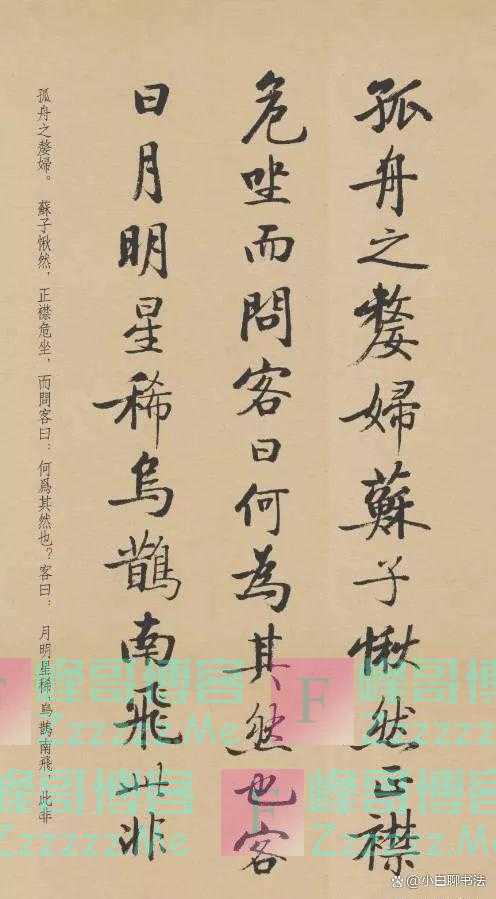 孤舟之嫠婦蘇子愀然正襟
危坐而問客曰何為其然也客
曰月明星稀烏鵲南飛此非
孤舟之嫠婦。蘇子愀然,正襟危坐,而問客曰:何爲其然也?客曰:月明星稀,烏鵲南飛,此非
峰哥博客
F
ZzzzzzZ.Me
峰哥博客
F
ZzzzzzZ.Me
@小白聊书法